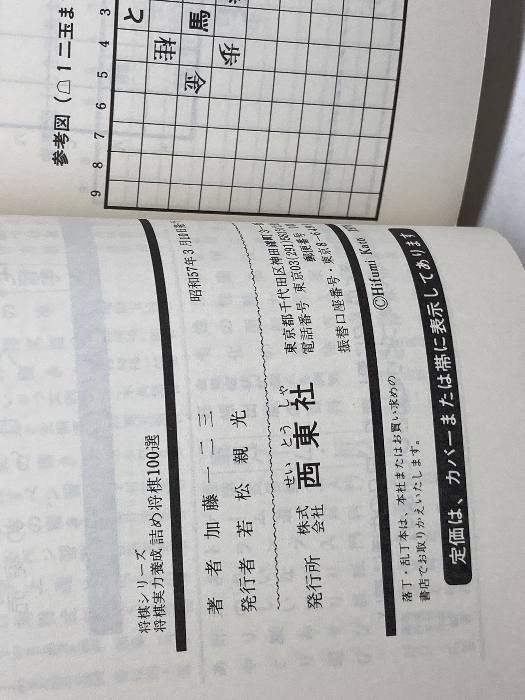 参考図（⌂１二玉ま
3
4
5
6
7
8
9
と
桂
馬
金
歩
将棋シリーズ
将棋実力養成 詰め将棋100選
昭和57年3月10日
著者 加藤一二三
発行者 若松親光
発行所 株式会社 西東社
せい とう しゃ
東京都千代田区神田錦町
電話番号 東京03(291)
郵便番号
振替口座番号・東京8-
©Hifumi Kato
落丁・乱丁本は、本社またはお買い求めの
書店でお取りかえいたします。
定価は、カバーまたは帯に表示してあります